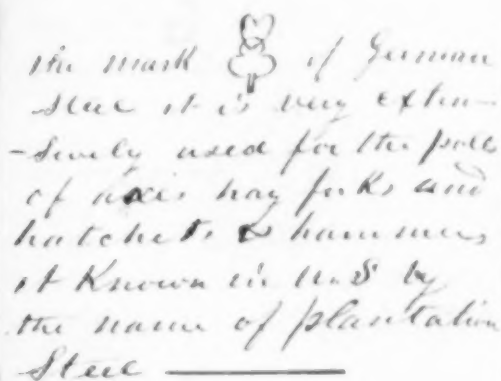 the mark of German
Steel it is very exten-
-sively used for the polls
of axes hay forks and
hatchets & hammers
it Known in U.S by
the name of plantation
Steel